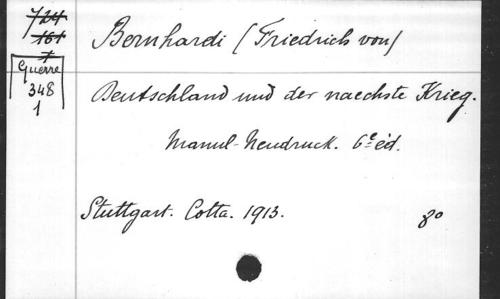 724
161
1
Guerre
348
1
Bernhardi (Friedrich von)
Deutschland und der naechste Krieg.
Manul-Neudruck. 6e éd.
Stuttgart. Cotta. 1913. 8o